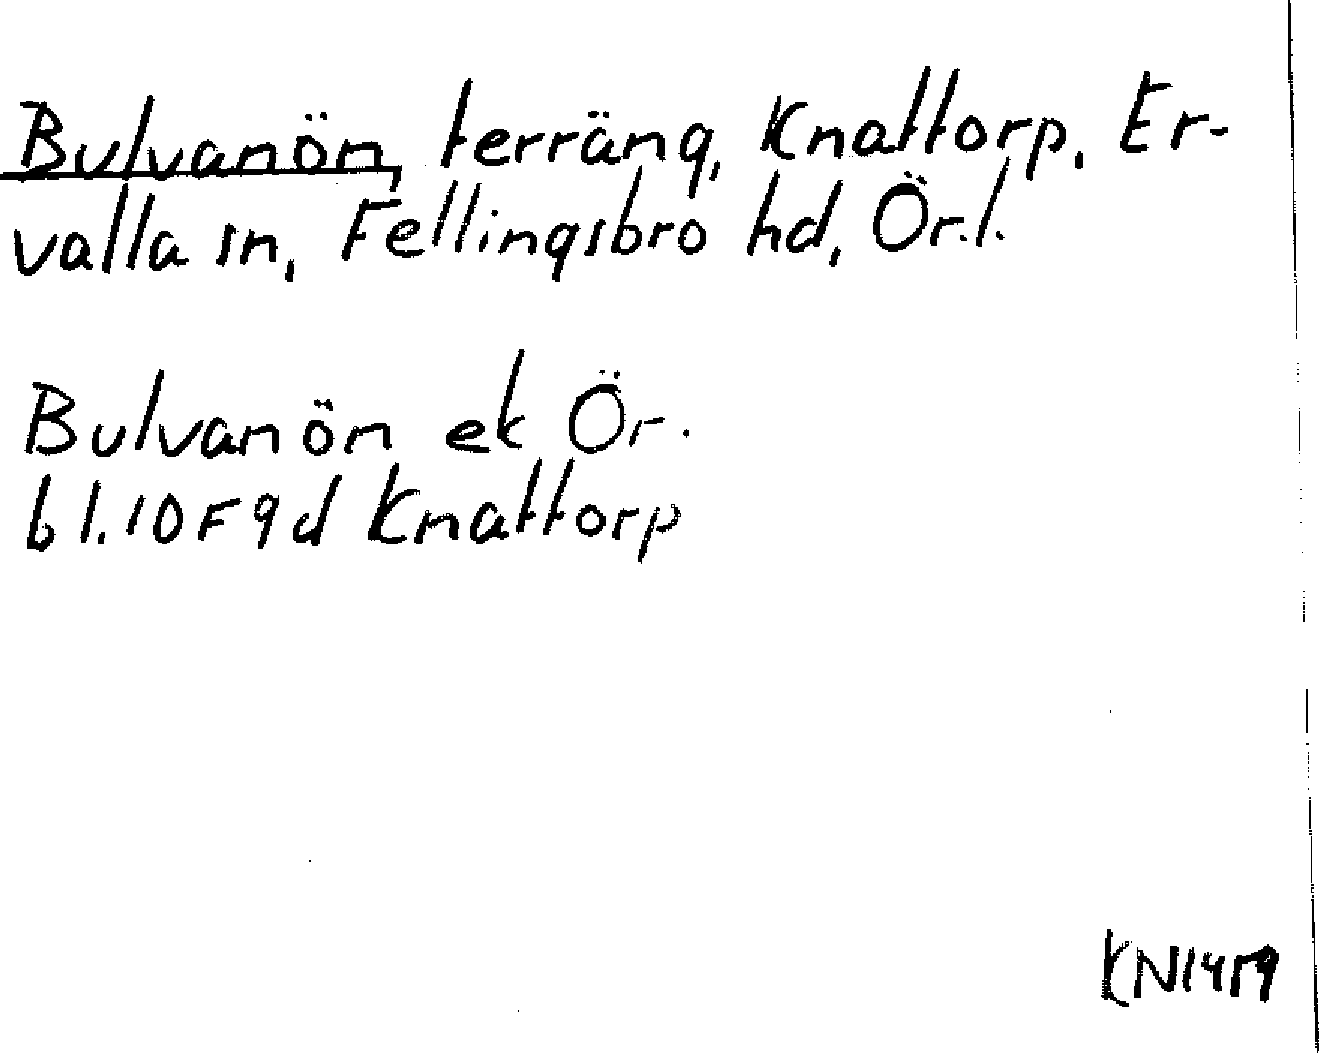 Bulvanön, terräng, Knattorp, Er-
valla sn, Fellingsbro hd, Ör.l.
Bulvanön ek Ör.
bl. 10F9d Knattorp